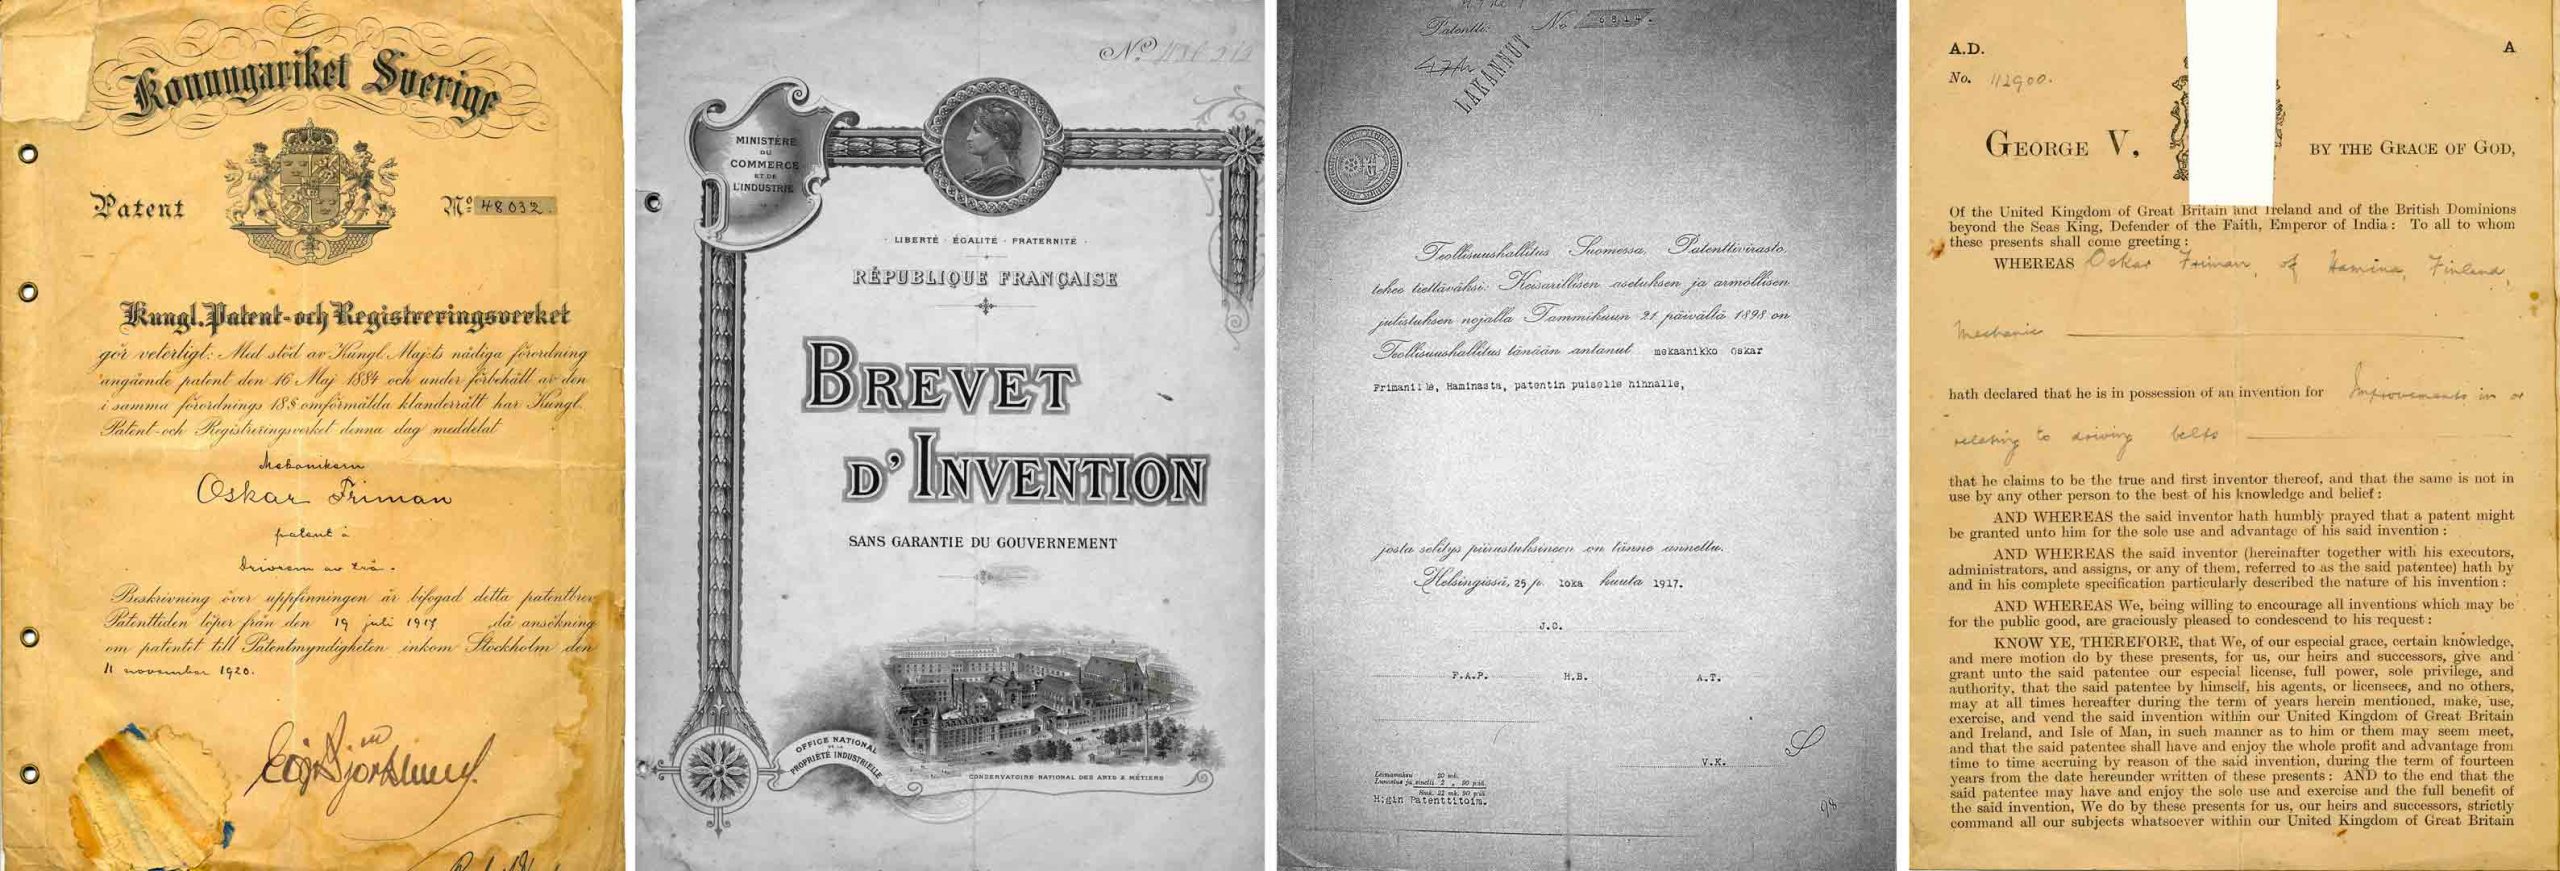 Konungariket Sverige
Patent
No 48032.
Kungl. Patent- och Registreringsverket
gör veterligt: Med stöd av Kungl. Maj:ts nådiga förordning
angående patent den 16 Maj 1884 och under förbehåll av den
i samma förordnings 18§ omförmälda klanderrätt har Kungl.
Patent- och Registreringsverket denna dag meddelat
Mekanikern
Oskar Friman
patent å
Drivrem av trä.
Beskrivning över uppfinningen är bifogad detta patentbrev
Patenttiden löper från den 19 juli 1917 då ansökning
om patentet till Patentmyndigheten inkom Stockholm den
11 november 1920.
No
MINISTÈRE
DU
COMMERCE
ET DE
L'INDUSTRIE
· LIBERTÉ · ÉGALITÉ · FRATERNITÉ ·
RÉPUBLIQUE FRANÇAISE
BREVET
D'INVENTION
SANS GARANTIE DU GOUVERNEMENT
OFFICE NATIONAL
DE LA
PROPRIÉTÉ INDUSTRIELLE
CONSERVATOIRE NATIONAL DES ARTS & MÉTIERS
Patentti: No 6814.
LAKANNUT
Teollisuushallitus Suomessa, Patenttivirasto,
tekee tiettäväksi: Keisarillisen asetuksen ja armollisen
julistuksen nojalla Tammikuun 21 päivältä 1898 on
Teollisuushallitus tänään antanut mekaanikko Oskar
Frimanille, Haminasta, patentin puiselle hihnalle,
josta selitys piirustuksineen on tänne annettu.
Helsingissä, 25 p. loka kuuta 1917.
J.C.
F.A.P. H.B. A.T.
V.K.
Leimamaksu 20 mk.
Lunastus ja sinetti 2 „ 90 piä
Smk. 22 mk. 90 piä
H:gin Patenttitoim.
98
A.D. A
No. 112900.
GEORGE V. BY THE GRACE OF GOD,
Of the United Kingdom of Great Britain and Ireland and of the British Dominions
beyond the Seas King, Defender of the Faith, Emperor of India: To all to whom
these presents shall come greeting:
WHEREAS Oskar Friman, of Hamina, Finland,
Mechanic
hath declared that he is in possession of an invention for Improvements in or
relating to driving belts
that he claims to be the true and first inventor thereof, and that the same is not in
use by any other person to the best of his knowledge and belief:
AND WHEREAS the said inventor hath humbly prayed that a patent might
be granted unto him for the sole use and advantage of his said invention:
AND WHEREAS the said inventor (hereinafter together with his executors,
administrators, and assigns, or any of them, referred to as the said patentee) hath by
and in his complete specification particularly described the nature of his invention:
AND WHEREAS We, being willing to encourage all inventions which may be
for the public good, are graciously pleased to condescend to his request:
KNOW YE, THEREFORE, that We, of our especial grace, certain knowledge,
and mere motion do by these presents, for us, our heirs and successors, give and
grant unto the said patentee our especial license, full power, sole privilege, and
authority, that the said patentee by himself, his agents, or licensees, and no others,
may at all times hereafter during the term of years herein mentioned, make, use,
exercise, and vend the said invention within our United Kingdom of Great Britain
and Ireland, and Isle of Man, in such manner as to him or them may seem meet,
and that the said patentee shall have and enjoy the whole profit and advantage from
time to time accruing by reason of the said invention, during the term of fourteen
years from the date hereunder written of these presents: AND to the end that the
said patentee may have and enjoy the sole use and exercise and the full benefit of
the said invention, We do by these presents for us, our heirs and successors, strictly
command all our subjects whatsoever within our United Kingdom of Great Britain